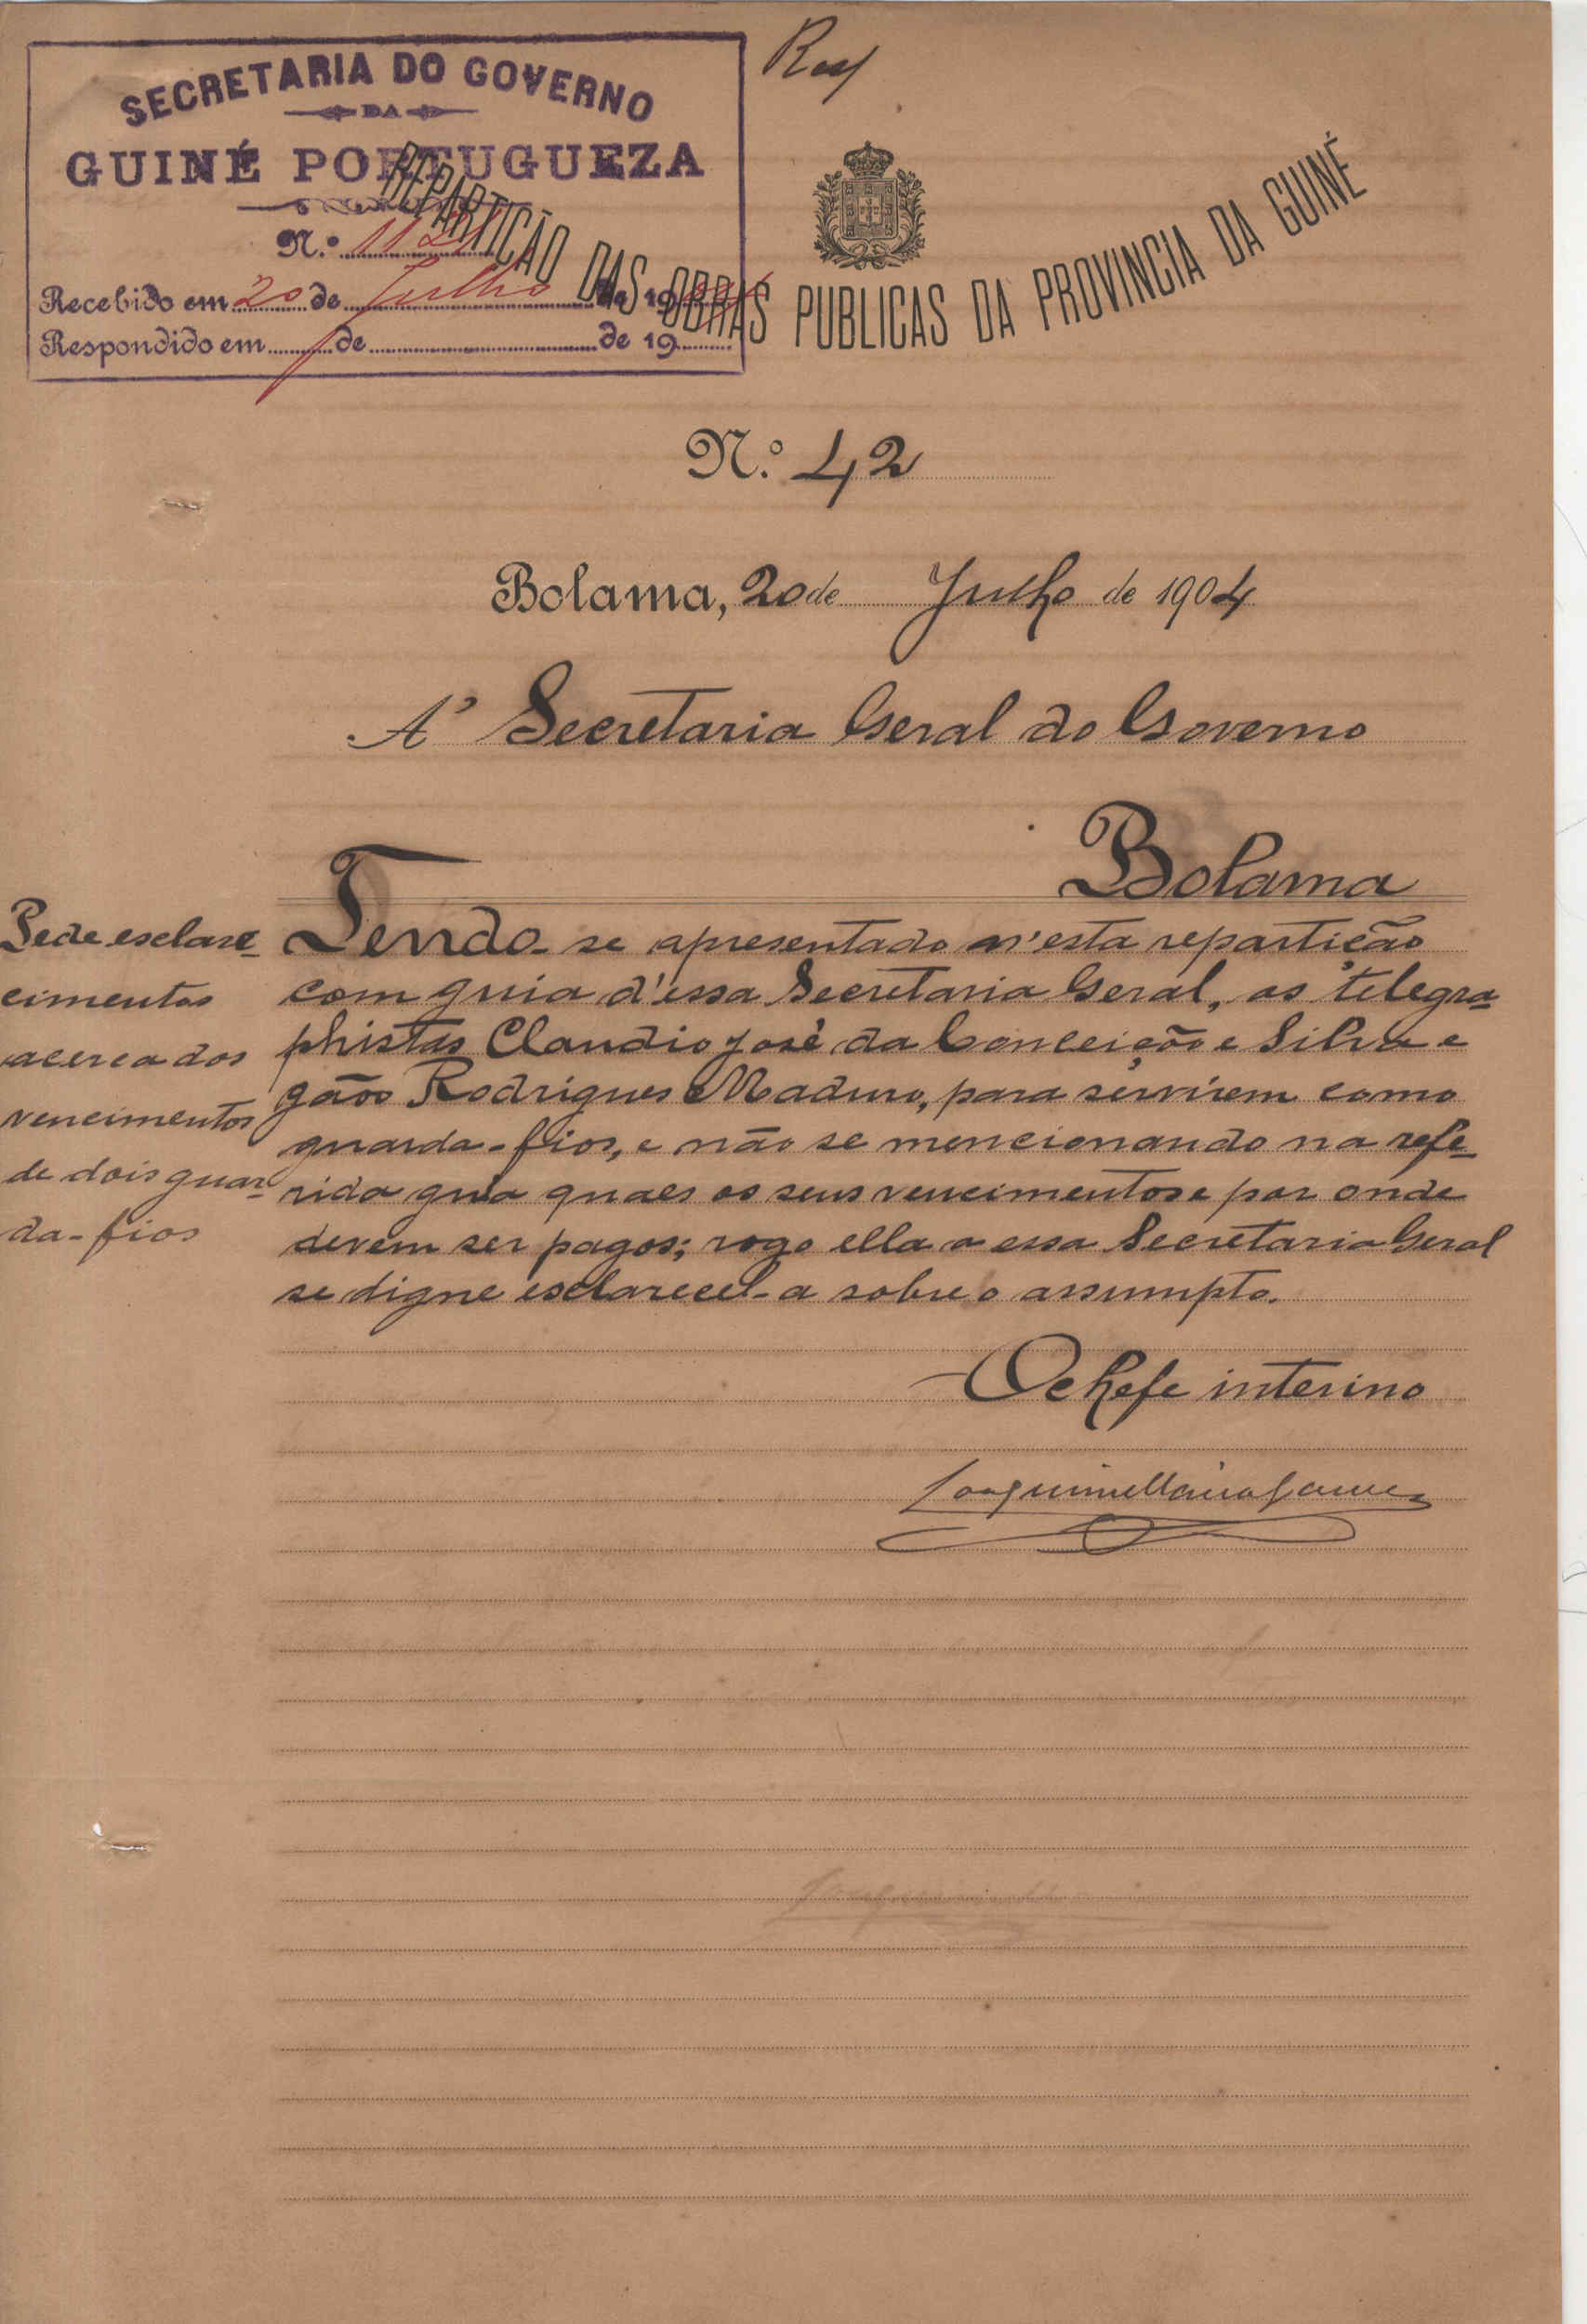 SECRETARIA DO GOVERNO
DA
GUINÉ PORTUGUEZA
N.º
Recebido em 20 de Julho de 1904
Respondido em de de 19
REPARTIÇÃO DAS OBRAS PUBLICAS DA PROVINCIA DA GUINÉ
N.º 42
Bolama, 20 de Julho de 1904
A' Secretaria Geral do Governo
Bolama
Pede esclare-
cimentos
acerca dos
vencimentos
de dois guar-
da-fios
Tendo-se apresentado n'esta repartição
com guia d'essa Secretaria Geral, os telegra-
phistas Claudio José da Conceição e Silva e
João Rodrigues Maduro, para servirem como
guarda-fios, e não se mencionando na refe-
rida guia quaes os seus vencimentos e por onde
devem ser pagos; rogo ella a essa Secretaria Geral
se digne esclarecel-a sobre o assumpto.
O chefe interino
Joaquim